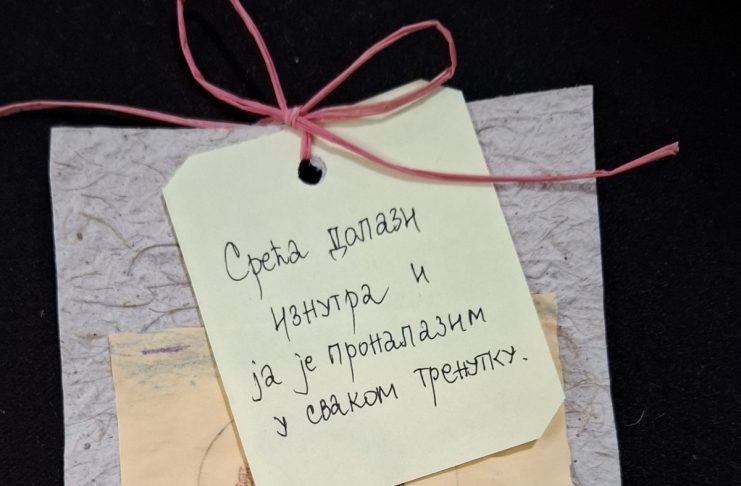 Срећа долази
изнутра и
ја је проналазим
у сваком тренутку.